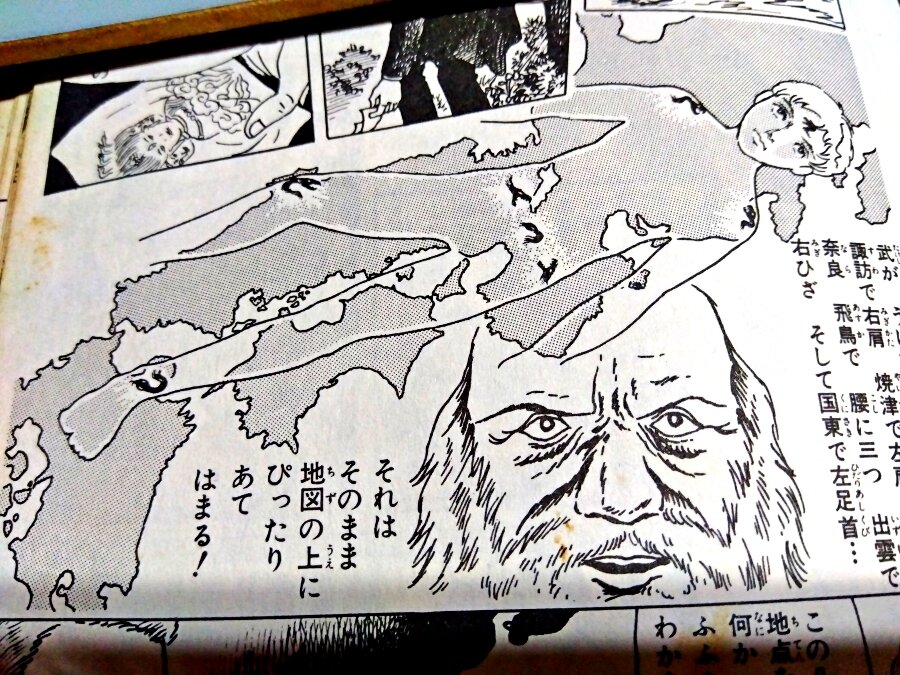 武が
諏訪で 右肩 焼津で左肩
奈良 飛鳥で 腰に三つ 出雲で
右ひざ そして国東で左足首…
それは
そのまま
地図の上に
ぴったり
あて
はまる!
この
地点
何か
ふ
わか